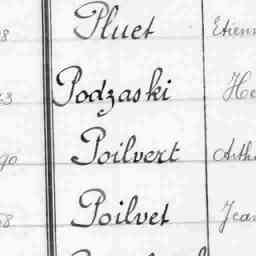 Pluet Etien
Podzaski He
Poilvert Arth
Poilvet Jea